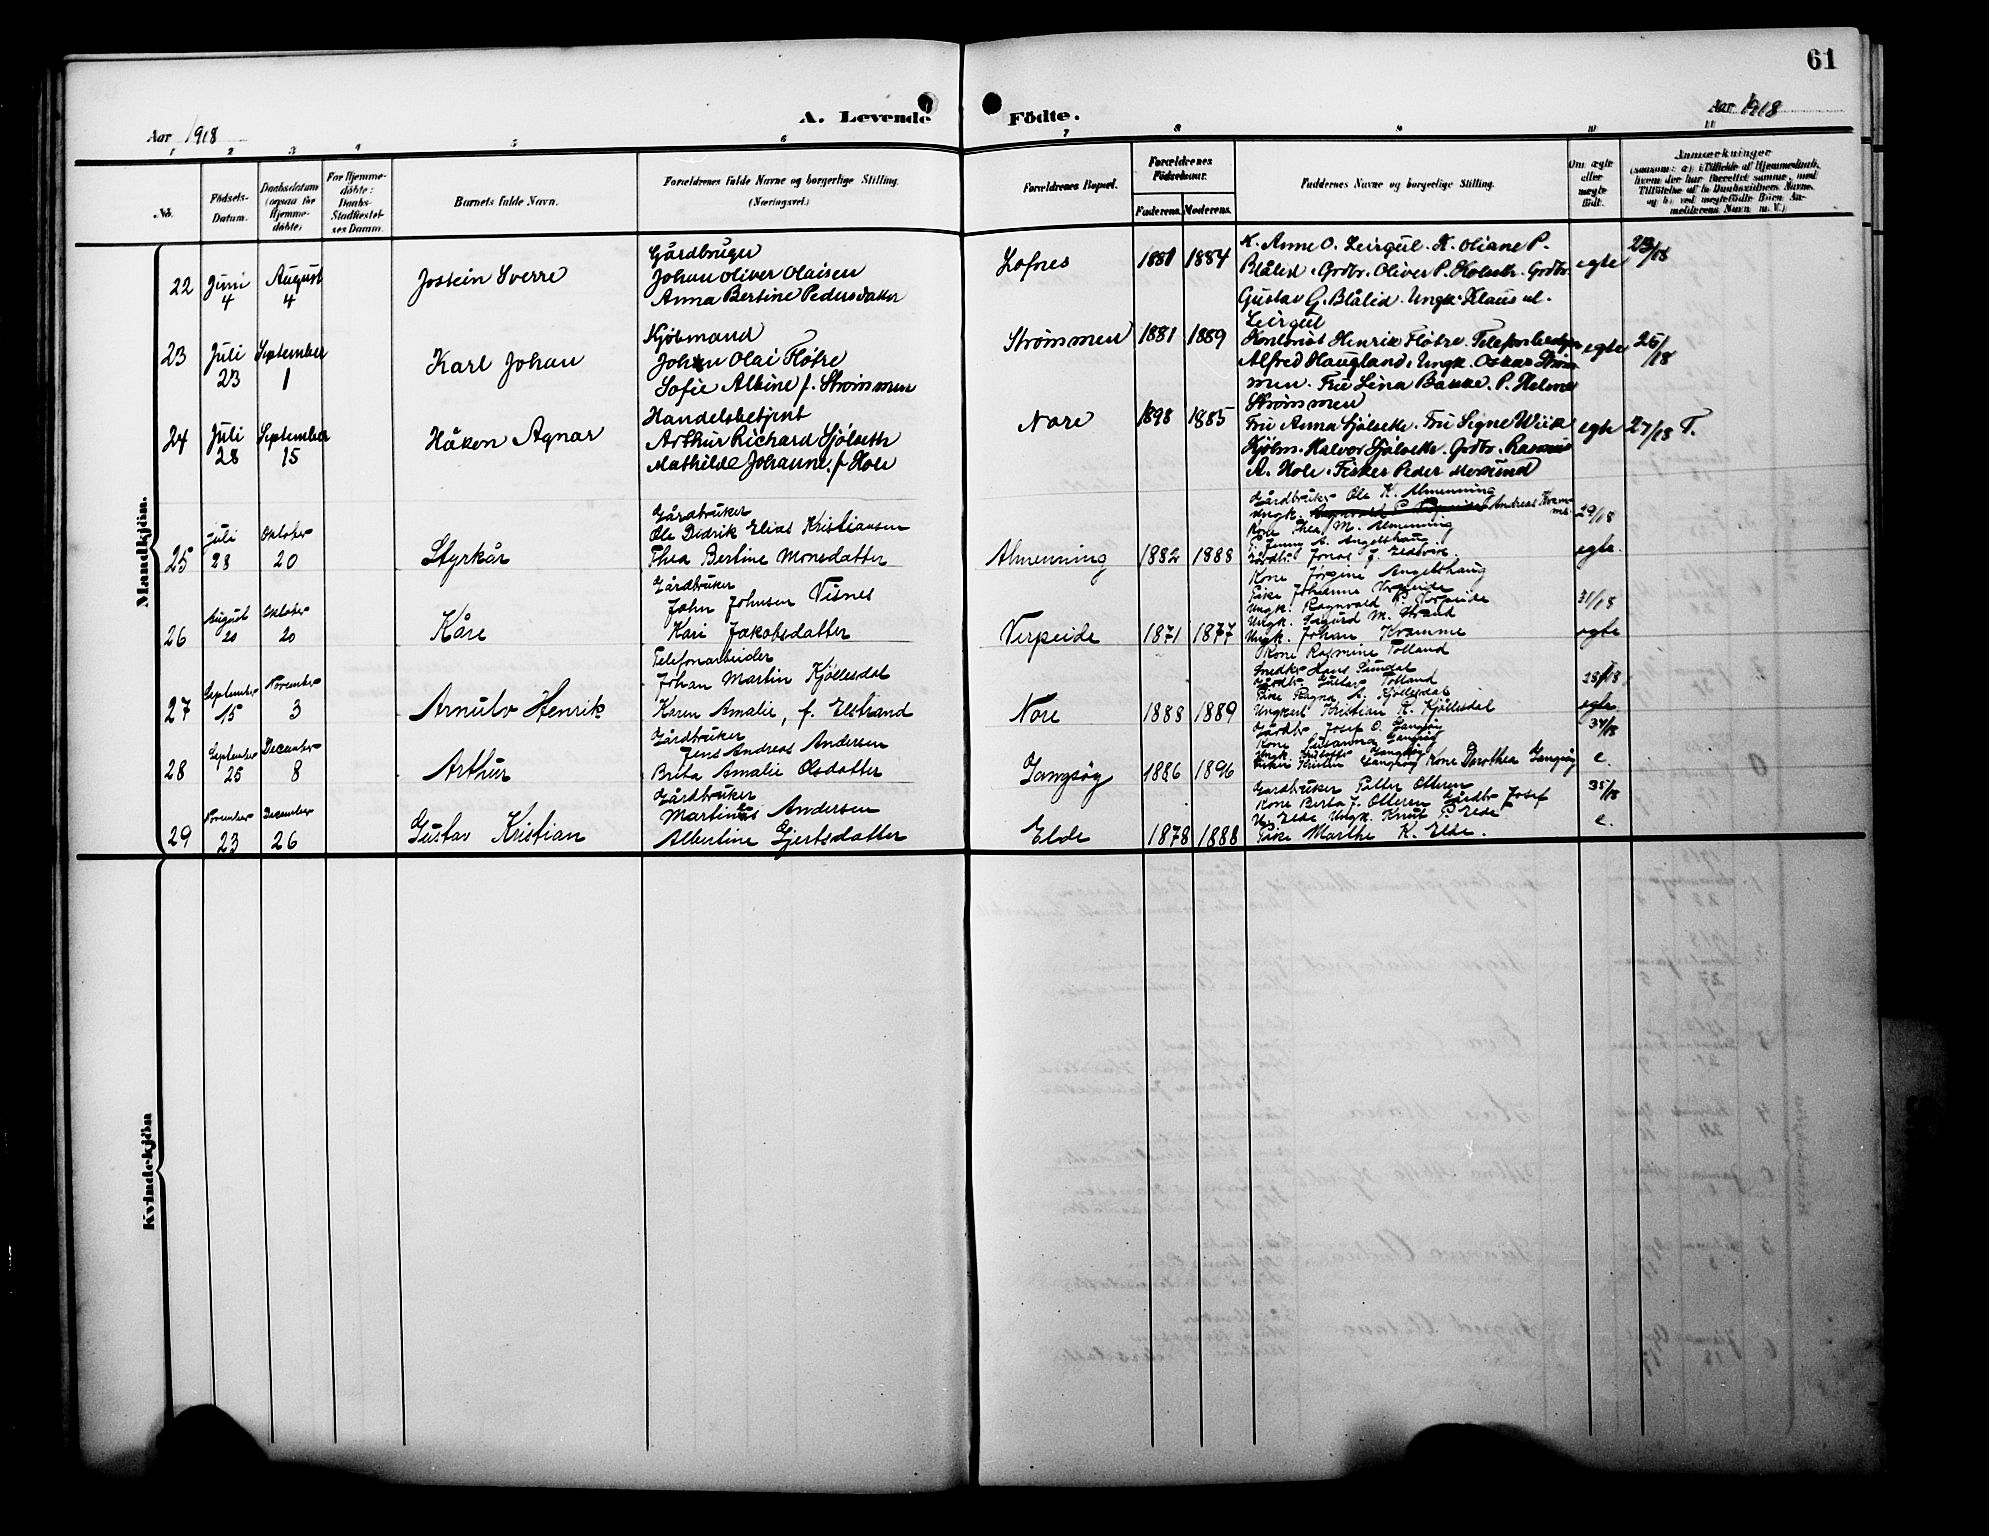 61
A. Levende Födte.
Aar 1918
Aar 1918
1 2 3 4 5 6 7 8 9 10 11
No.
Födsels-
Datum.
Daabsdatum
(ogsaa for
Hjemme-
döbte)
For Hjemme-
döbte:
Daabs-
Stadfæstel-
ses Datum.
Barnets fulde Navn.
Forældrenes fulde Navne og borgerlige Stilling.
(Næringsvei.)
Forældrenes Bopæl.
Forældrenes
Födselsaar.
Faderens. Moderens.
Faddernes Navne og borgerlige Stilling.
Om ægte
eller
uægte
födt.
Anmærkninger
Mandkjön.
22 Juni 4 August 4 Jostein Sverre
Gårdbruger
Johan Oliver Olaisen
Anna Bertine Pedersdatter
Lofnes 1881 1884
K. Anne O. Leirgul. K. Oliane P.
Blålid. Grdbr. Oliver P. Kolseth. Grdbr.
Gustav G. Blålid. Ungk. Klaus
Leirgul
egte 23/18
23 Juli 23 September 1 Karl Johan
Kjøbmand
Johan Olai Fløtre
Sofie Albine f. Strømmen
Strømmen 1881 1889
Henrik Fløtre. Telefonbestyrer
Alfred Haugland. Ungk. Oskar Strøm-
men. Fru Lina Bakke. P. Helene
Strømmen
egte 25/18
24 Juli 28 September 15 Håkon Agnar
Handelsbetjent
Arthur Richard Sjølseth
Mathilde Johanne f. Hole
Nore 1898 1885
Fru Anna Sjølseth. Fru Signe Wiik
Kjøbm. Halvor Sjølseth. Grdbr. Rasmus
A. Hole. Fisker Peder
egte 27/18 T.
25 Juli 28 Oktober 20 Styrkår
Gårdbruker
Ole Didrik Elias Kristiansen
Thea Bertine Monsdatter
Almenning 1882 1888
Gårdbruker Ole K. Almenning
Ungk. Andreas Kram-
me.
Kone Thea M. Almenning
P. Jenny A. Angelshaug
Gårdbr. Jonas J.
29/18 egte.
26 August 20 Oktober 20 Kåre
Gårdbruker
John Johnsen Visnes
Kari Jakobsdatter
Verpeide 1871 1877
Kone Jørgine Angelshaug
Pike Johanne Verpeide
Ungk. Ragnvald P. Verpeide
Ungk. Sigurd M. Strand
Ungk. Johan Kramme
31/18 egte
27 September 15 November 3 Arnulv Henrik
Telefonarbeider
Johan Martin Kjøllesdal
Karen Amalie, f. Elstrand
Nore 1888 1889
Kone Rasmine Tolland
Snedker Hans Sundal
Gårdbr. Gustav Tolland
Pike Ragna A. Kjøllesdal
Ungkarl Kristian K. Kjøllesdal
28/18 egte
28 September 25 December 8 Arthur
Gårdbruker
Jens Andreas Andersen
Brita Amalie Olsdatter
Langsøy 1886 1896
Gårdbr. Josef O. Langsøy
Kone Susanna Langsøy
Ungk. Langsøy
Pike Langsøy Kone Dorothea Langsøy
34/18 e.
29 November 23 December 26 Gustav Kristian
Gårdbruker
Martinus Andersen
Albertine Gjertsdatter
Elde 1878 1888
Gårdbruker Petter Otteren
Kone Berta J. Otteren Gårdbr. Josef
Elde Ungk. Knut P. Elde
Pike Marthe K. Elde.
35/18 e.
Kvindekjön